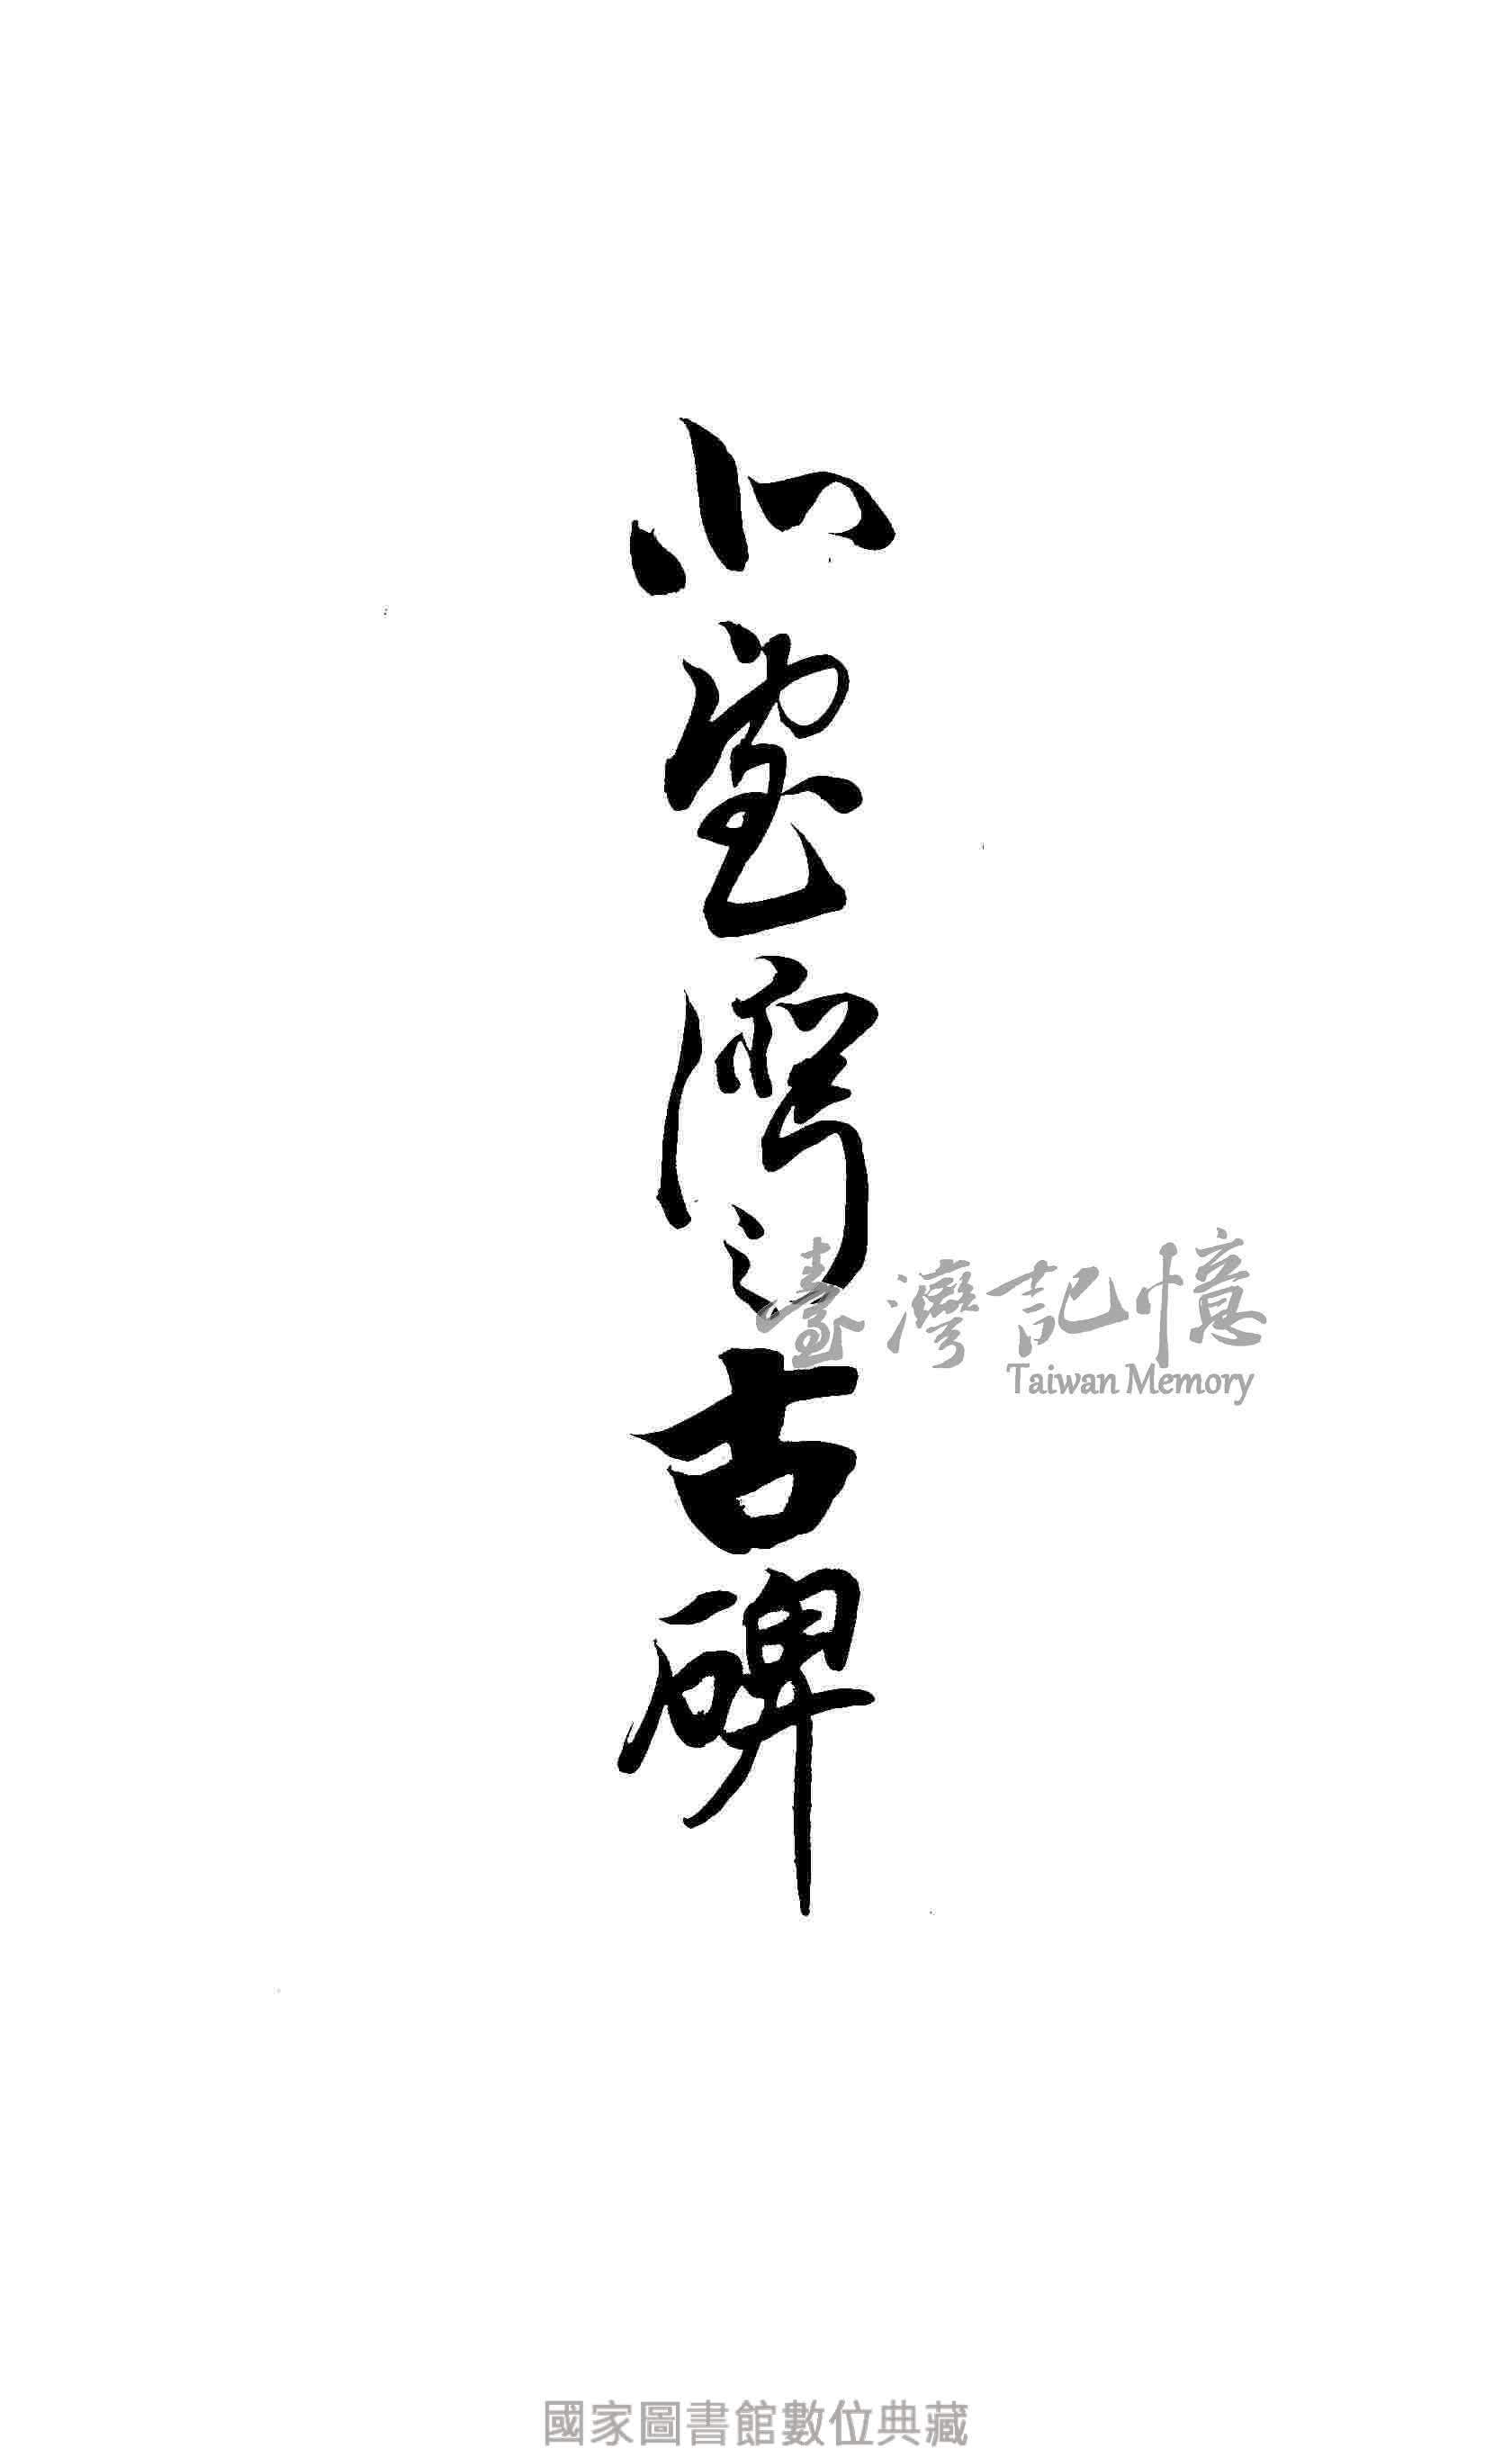 北臺灣之古碑
臺灣記憶
Taiwan Memory
國家圖書館數位典藏